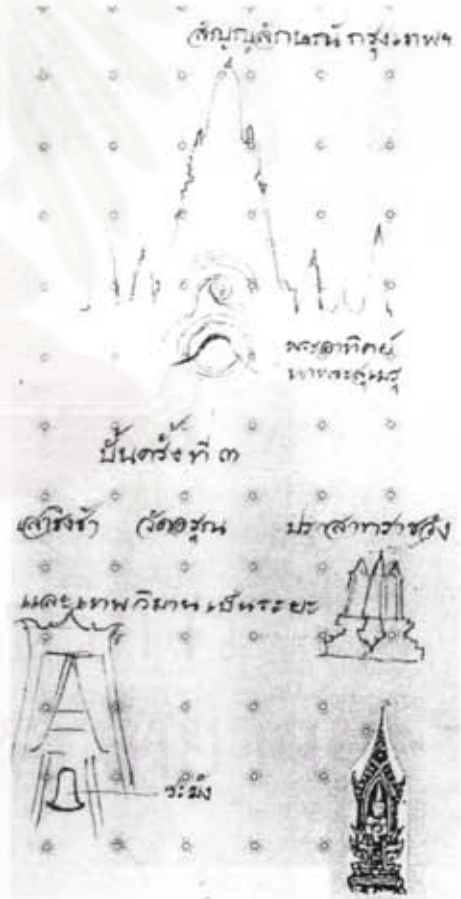 สัญญลักษณ์ กรุงเทพฯ
พระอาทิตย์
เขาพระสุเมรุ
ปั้นครั้งที่ ๓
เสาชิงช้า วัดอรุณ ปราสาทราชวัง
และเทพวิมาน เป็นระยะ
ระฆัง